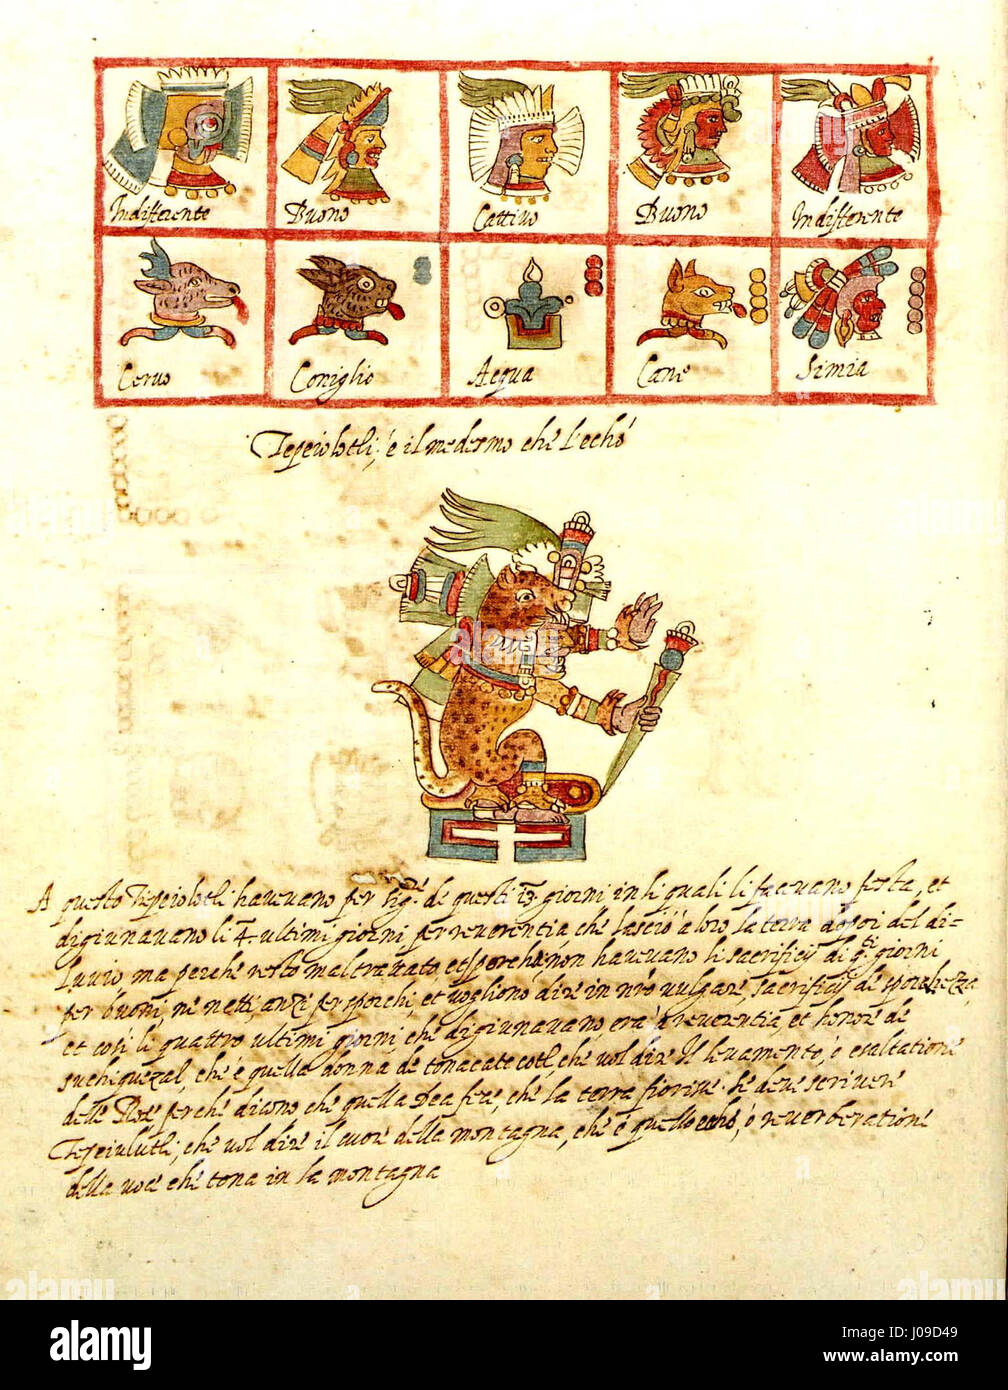 Indifferente Buono Cattivo Buono Indifferente
Cervo Coniglio Acqua Cane Simia
Tepeiolotli; è il medesmo che l'echo
A questo Tepeiolotli havevano per sig.re de questi 13 giorni in li quali li facevano festa, et
digiunavano li 4 ultimi giorni per reverentia, che lasciò a loro la terra dopoi del di-
luvio ma perche restò mal trattato, et sporcha, non havevano li sacrificij di giorni
per buoni, ne netti, anze per sporchi, et vogliono dire in nro vulgare, sacrificij de sporchezza,
et così li quattro ultimi giorni, che digiunavano, era a reverentia, et honore de
suchiquezal, che è quella donna de tonacatecotl, che vol dire Il levamento, ò esaltatione
delle Rose perche dicono che quella Dea fece, che la terra fiorine. Se deve scrivere
Tepeiulutli, che vol dire il cuore della montagna, che è quello echo, ò reverberatione
della voce che tona in la montagna
alamy
Image ID: J09D49
www.alamy.com